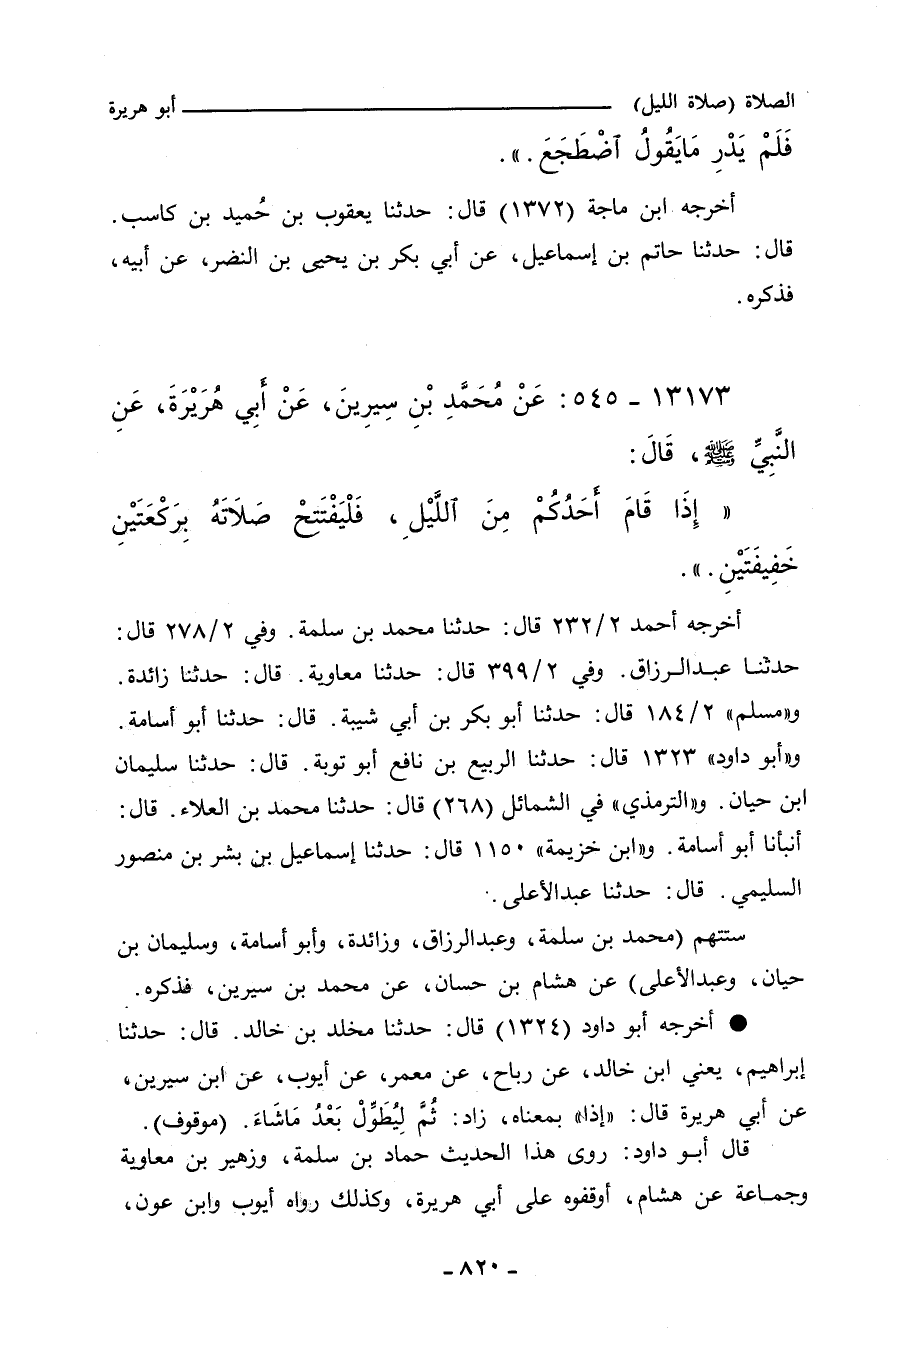 الصلاة (صلاة الليل) ــــــــــــــــــــ أبو هريرة
فَلَمْ يَدْرِ مَايَقُولُ ٱضْطَجَعَ . » .
أخرجه ابن ماجة (١٣٧٢) قال: حدثنا يعقوب بن حُميد بن كاسب.
قال: حدثنا حاتم بن إسماعيل، عن أبي بكر بن يحيى بن النضر، عن أبيه،
فذكره .
١٣١٧٣ - ٥٤٥: عَنْ مُحَمَّدِ بْنِ سِيرِينَ، عَنْ أَبِي هُرَيْرَةَ، عَنِ
النَّبِيِّ ﷺ، قَالَ:
« إِذَا قَامَ أَحَدُكُمْ مِنَ ٱللَّيْلِ ، فَلْيَفْتَتِحْ صَلَاتَهُ بِرَكْعَتَيْنِ
خَفِيفَتَيْنِ . » .
أخرجه أحمد ٢٣٢/٢ قال: حدثنا محمد بن سلمة. وفي ٢٧٨/٢ قال:
حدثنا عبدالرزاق. وفي ٣٩٩/٢ قال: حدثنا معاوية. قال: حدثنا زائدة.
و«مسلم» ١٨٤/٢ قال: حدثنا أبو بكر بن أبي شيبة. قال: حدثنا أبو أسامة.
و«أبو داود» ١٣٢٣ قال: حدثنا الربيع بن نافع أبو توبة. قال: حدثنا سليمان
ابن حيان. و«الترمذي» في الشمائل (٢٦٨) قال: حدثنا محمد بن العلاء. قال:
أنبأنا أبو أسامة. و«ابن خزيمة» ١١٥٠ قال: حدثنا إسماعيل بن بشر بن منصور
السليمي. قال: حدثنا عبدالأعلى.
ستتهم (محمد بن سلمة، وعبدالرزاق، وزائدة، وأبو أسامة، وسليمان بن
حيان، وعبدالأعلى) عن هشام بن حسان، عن محمد بن سيرين، فذكره.
● أخرجه أبو داود (١٣٢٤) قال: حدثنا مخلد بن خالد. قال: حدثنا
إبراهيم، يعني ابن خالد، عن رباح، عن معمر، عن أيوب، عن ابن سيرين،
عن أبي هريرة قال: «إذا» بمعناه، زاد: ثُمَّ لِيُطَوِّلْ بَعْدُ مَاشَاءَ. (موقوف).
قال أبو داود: روى هذا الحديث حماد بن سلمة، وزهير بن معاوية
وجماعة عن هشام، أوقفوه على أبي هريرة، وكذلك رواه أيوب وابن عون،
- ٨٢٠ -